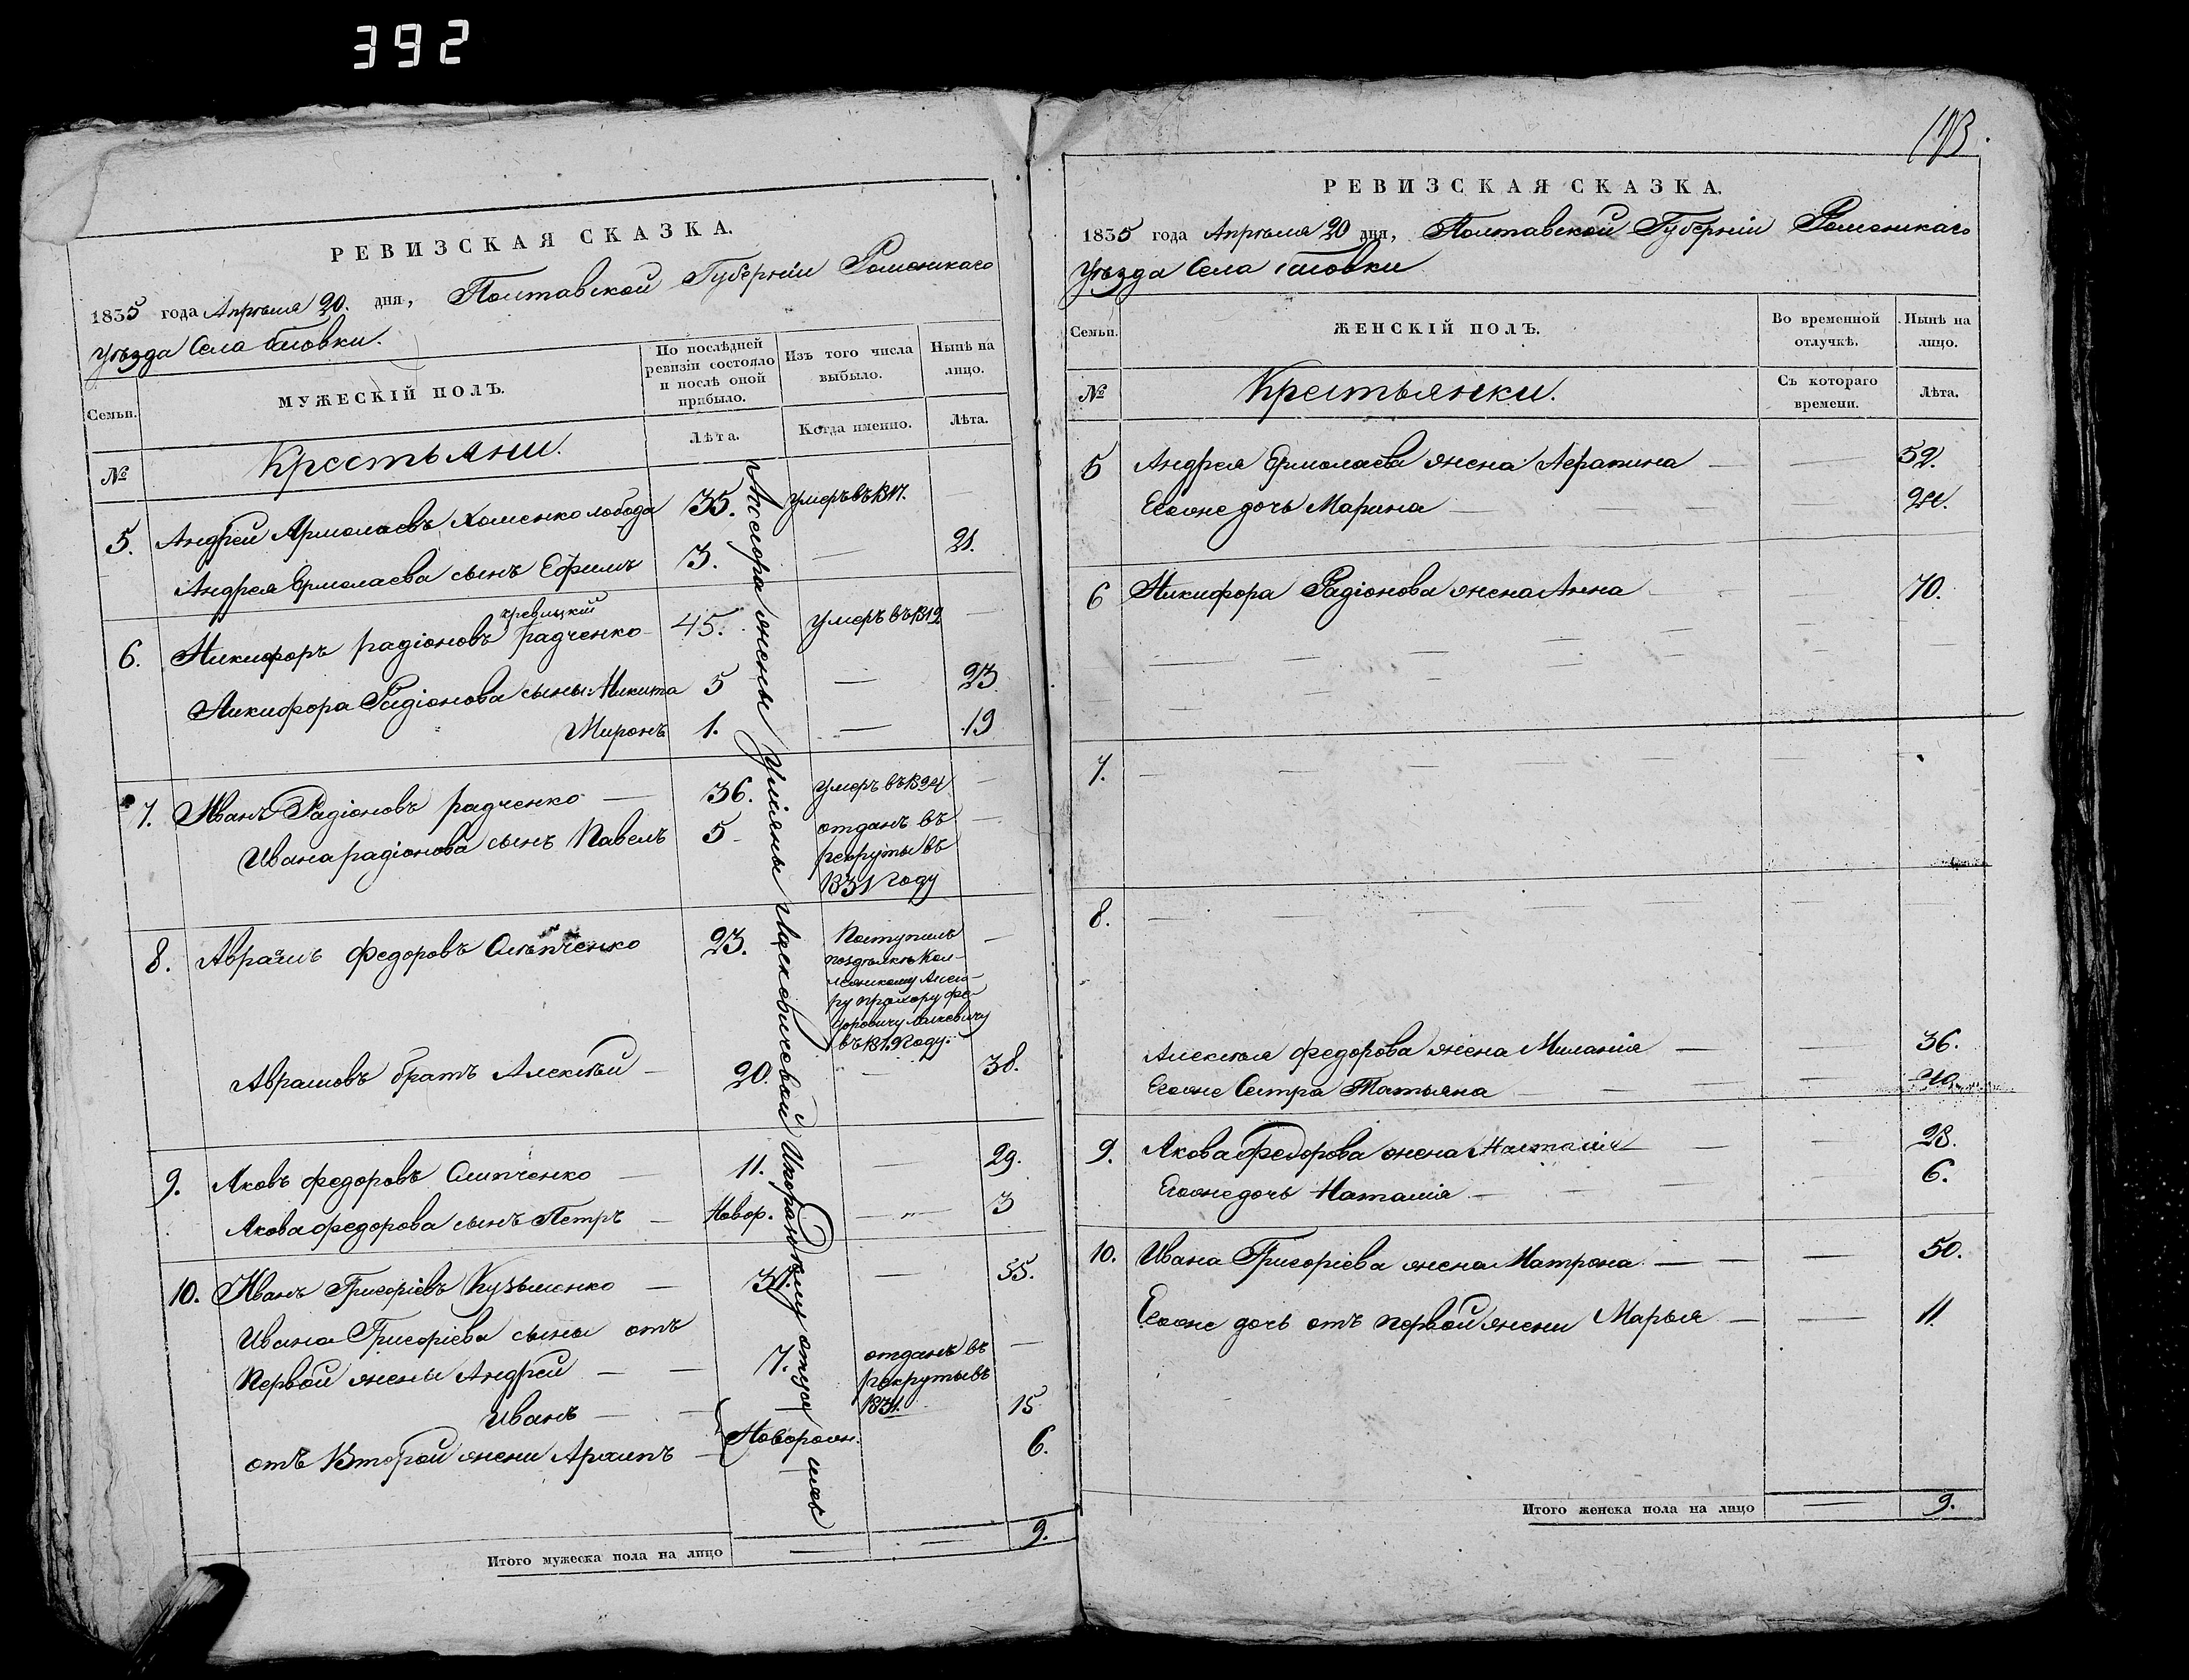 392
РЕВИЗСКАЯ СКАЗКА.
1835 года Апрѣля 20. дня, Полтавской Губерніи Роменскаго
уѣзда Села
Семьи.
МУЖЕСКІЙ ПОЛЪ.
По послѣдней ревизіи состояло и послѣ оной прибыло.
Изъ того числа выбыло.
Нынѣ на лицо.
№
Крестьяни.
Лѣта.
Когда именно.
Лѣта.
5. Андрей Армолаевъ Хоменко лобода 35. умеръ въ 1817. —
Андрея Ермолаева сынъ Ефимъ 3. — 21.
кревицкій
6. Никифоръ радіоновъ радченко 45. умеръ въ 1819 —
Никифора Радіонова сыны: Никита 5 — 23
Миронъ 1. — 19
7. Иванъ Радіоновъ радченко — 36. умеръ въ 1824 —
Ивана радіонова сынъ Павелъ 5 - отданъ въ —
рекруты въ
1831 году
8. Аврамъ федоровъ Слѣпченко 23. Поступилъ —
въ 1819 году.
Аврамовъ братъ Алексѣй — 20. — 38.
9. Яковъ федоровъ Слипченко — 11. — 29.
Якова федорова сынъ Петръ — Новор. — „ — 3
10. Иванъ Григоріевъ Кузьменко — 37. — 55.
Ивана Григоріева сыны отъ
Первой жены Андрей — — 7. отданъ въ —
рекруты въ
1831.
Иванъ — — 15
отъ Второй жени Архипъ — Новорож. 6.
Итого мужеска пола на лицо — — 9.
Маіора жены Ульяны
173.
РЕВИЗСКАЯ СКАЗКА.
1835 года Апрѣля 20 дня, Полтавской Губерніи Роменскаго
уѣзда Села
Семьи.
ЖЕНСКІЙ ПОЛЪ.
Во временной отлучкѣ.
Нынѣ на лицо.
№
Крестьянки.
Съ котораго времени.
Лѣта.
5 Андрея Ермолаева жена — — 52.
Егоже дочь Марина — — 24.
6 Никифора Радіонова жена Анна — — 70.
7. —
8. —
Алексѣя федорова жена Миланія — — 36.
Егоже Сестра Татьяна — — 40
9. Якова федорова жена — — 28.
Егоже дочь Наталія — — 6.
10. Ивана Григоріева жена Матрона — — — 50.
Егоже дочь отъ первой жени Марья — — 11.
Итого женска пола на лицо — 9.